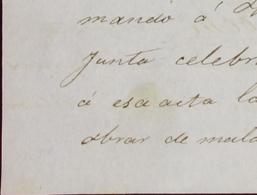 mandó á
Junta celebr
á esa acta la
obrar de mala